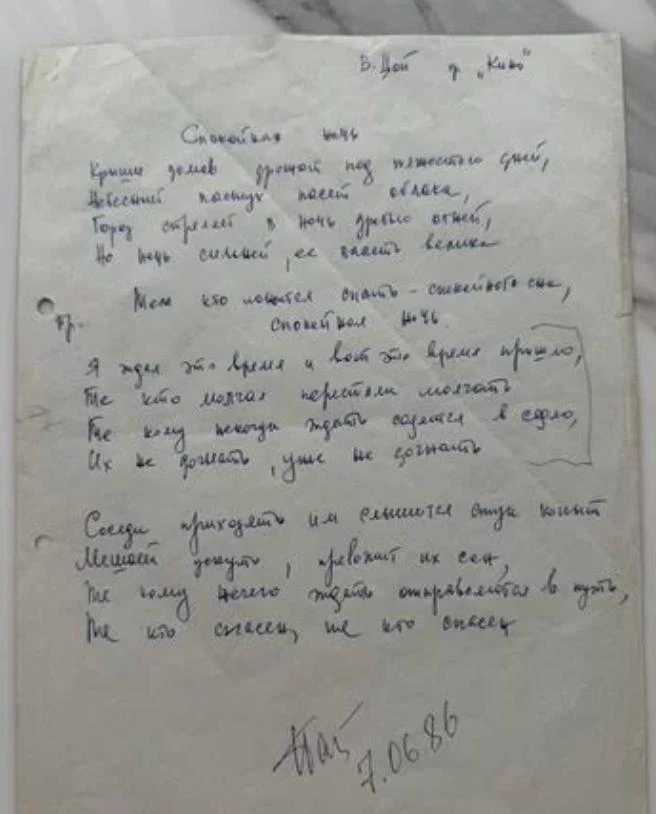 В. Цой гр. „Кино"
Спокойная ночь
Крыши домов дрожат под тяжестью дней,
Небесный пастух пасёт облака,
Город стреляет в ночь дробью огней,
Но ночь сильней, ее власть велика
Тем кто ложится спать - спокойного сна,
Пр.
спокойная ночь.
Я ждал это время и вот это время пришло,
Те кто молчал перестали молчать
Те кому некогда ждать садятся в седло,
Их не догнать, уже не догнать
Соседи приходят им слышится стук копыт
Мешает уснуть, тревожит их сон,
Те кому нечего ждать отправляются в путь,
Те кто спасен, те кто спасен
7.06.86